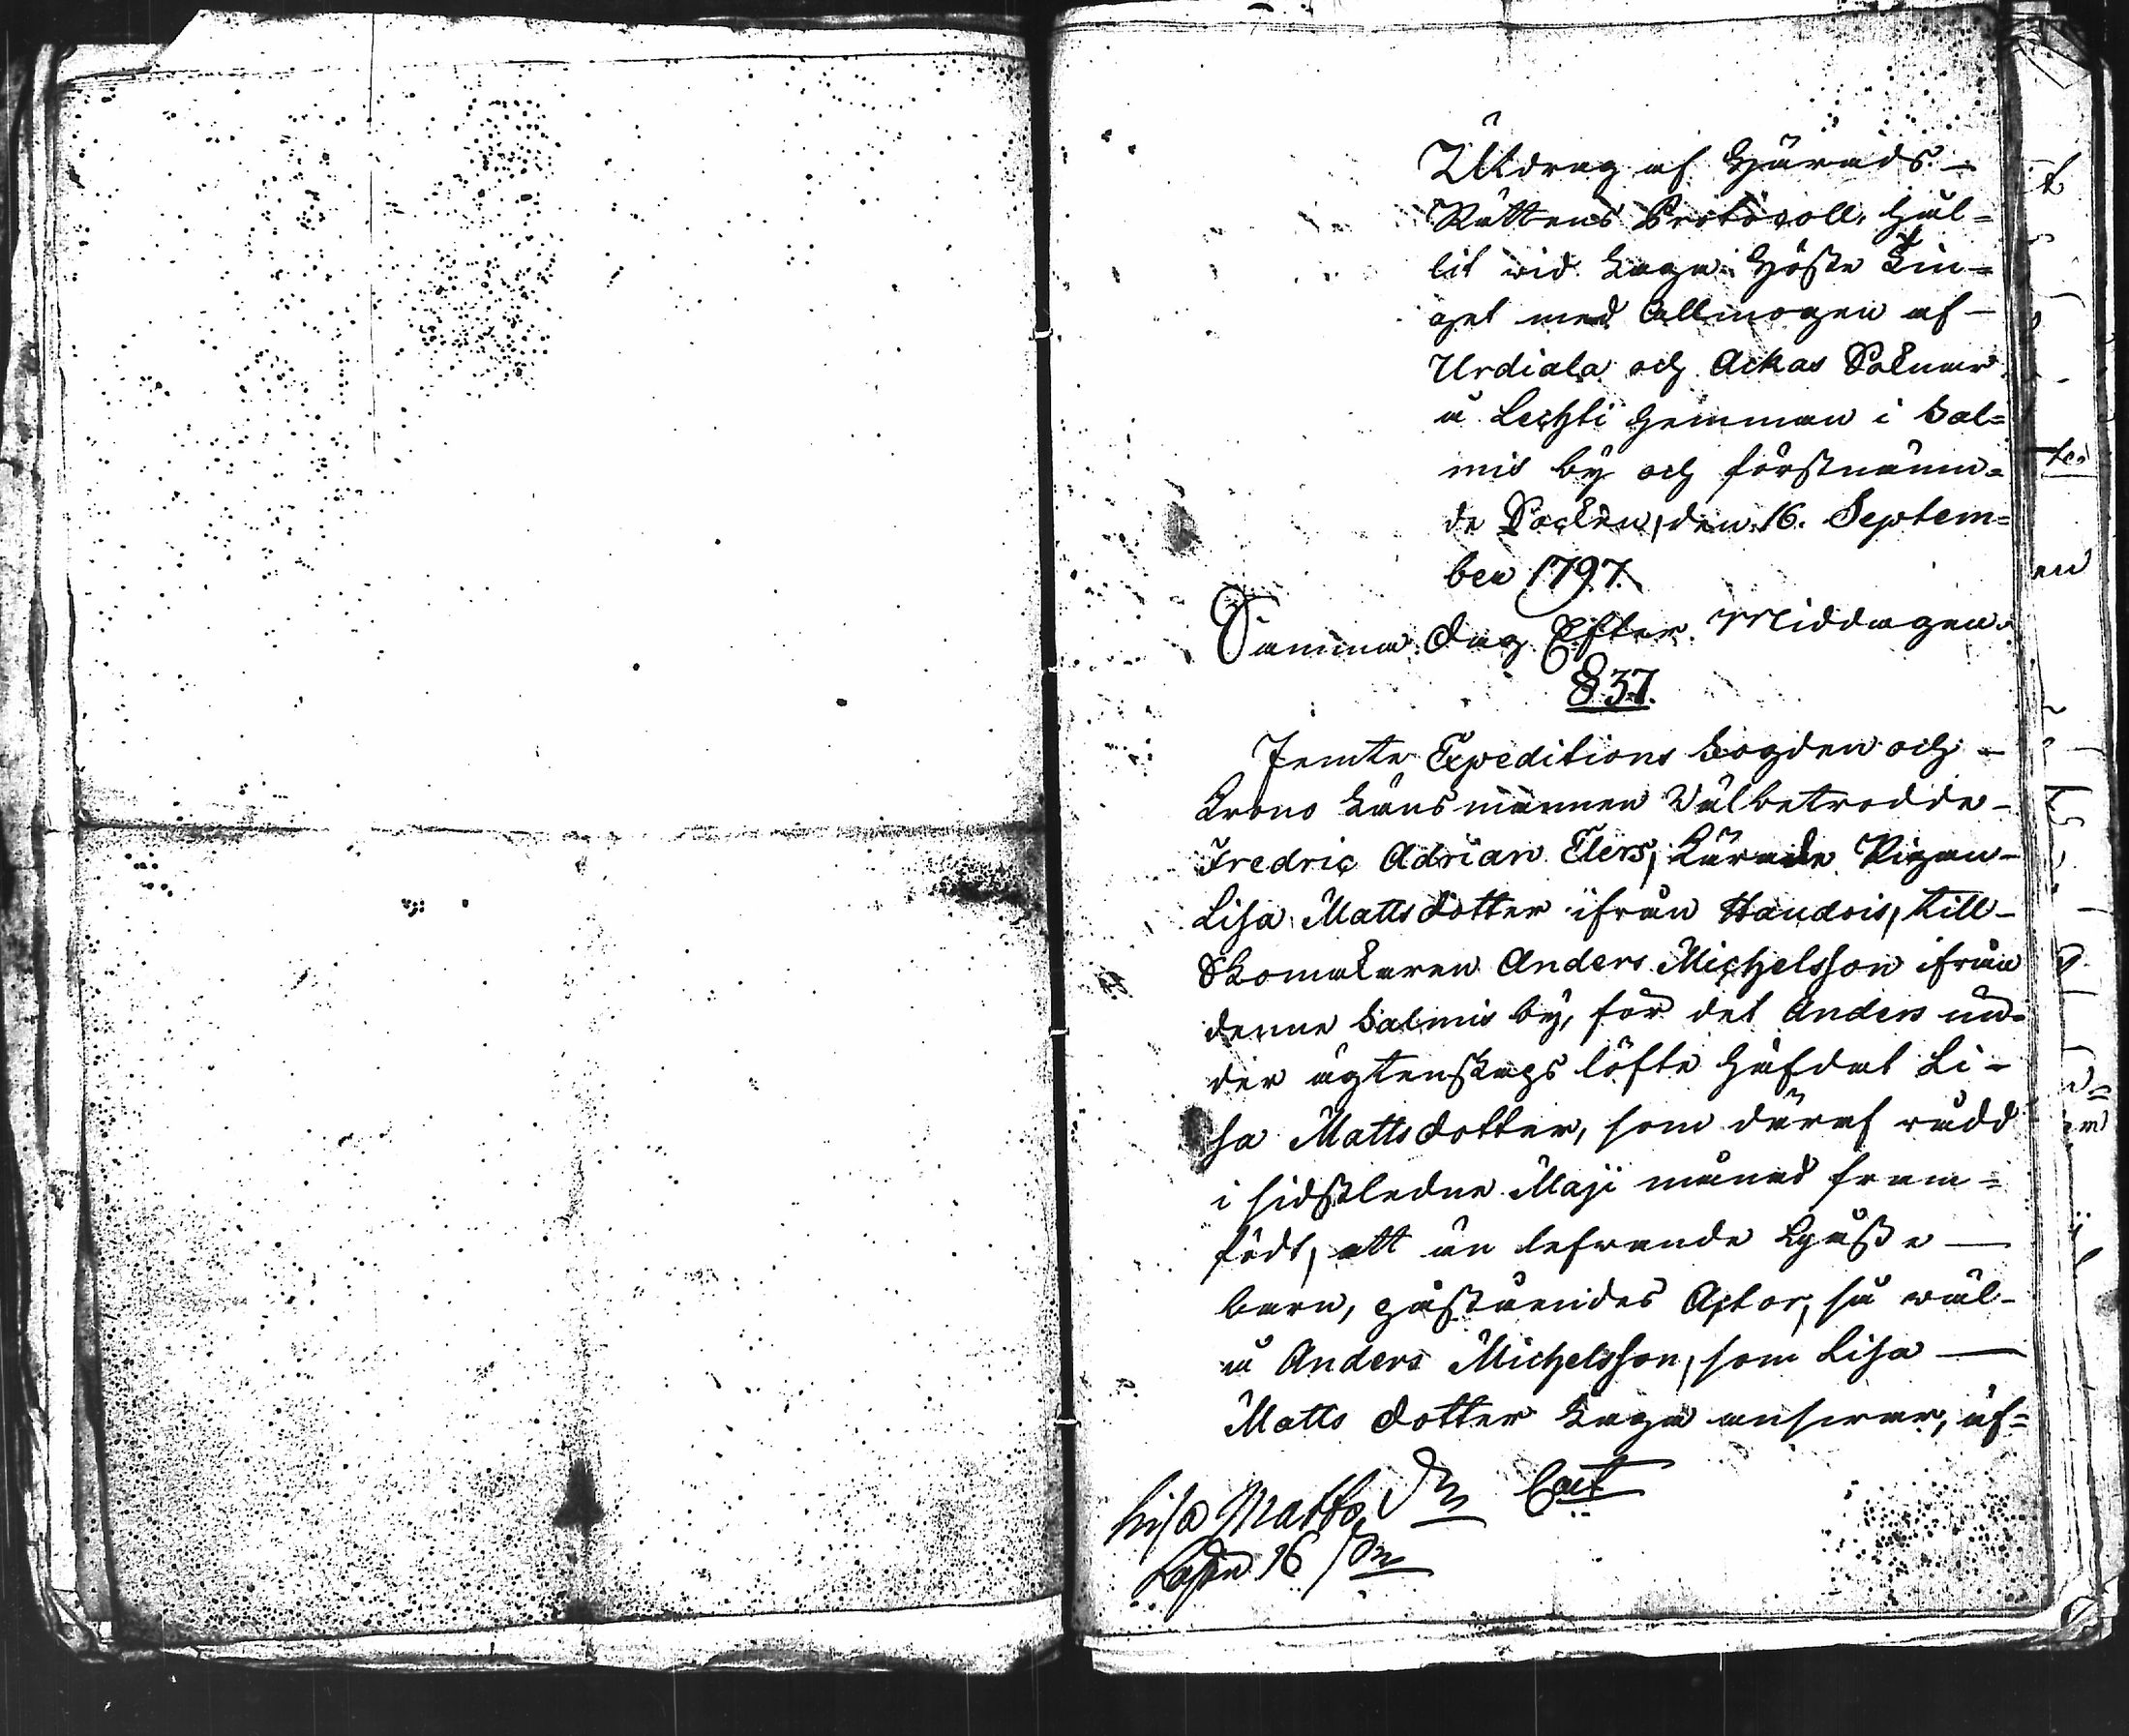 Utdrag af Härads-
Rättens Protocoll, hål-
lit wid Laga Höste Tin-
get med Allmogen af
Urdiala och Ackas Soknar
å Lechti hemman i Sal-
mis by och förstnämn-
de Sockn, den 16. Septem-
ber 1797.
Samma dag Efter Middagen.
§ 37.
Jemte Expeditions Fogden och
Crono Länsmannen Wälbetrodde
Fredric Adrian Elers, kärade Pigan
Lisa Mattsdotter ifrån Handois, till
Skomakaren Anders Michelsson ifrån
denne Salmis by, för det Anders un-
der ägtenskaps löfte häfdat Li-
sa Mattsdotter, som däraf rådd
i sidstledne Maji månad fram-
födt, ett än lefwande Gåsse-
barn, påståendes Actor, så wäl
å Anders Michelsson, som Lisa
Matts dotter Laga answar, äf-
Lisa Matts
16
t
ten
en